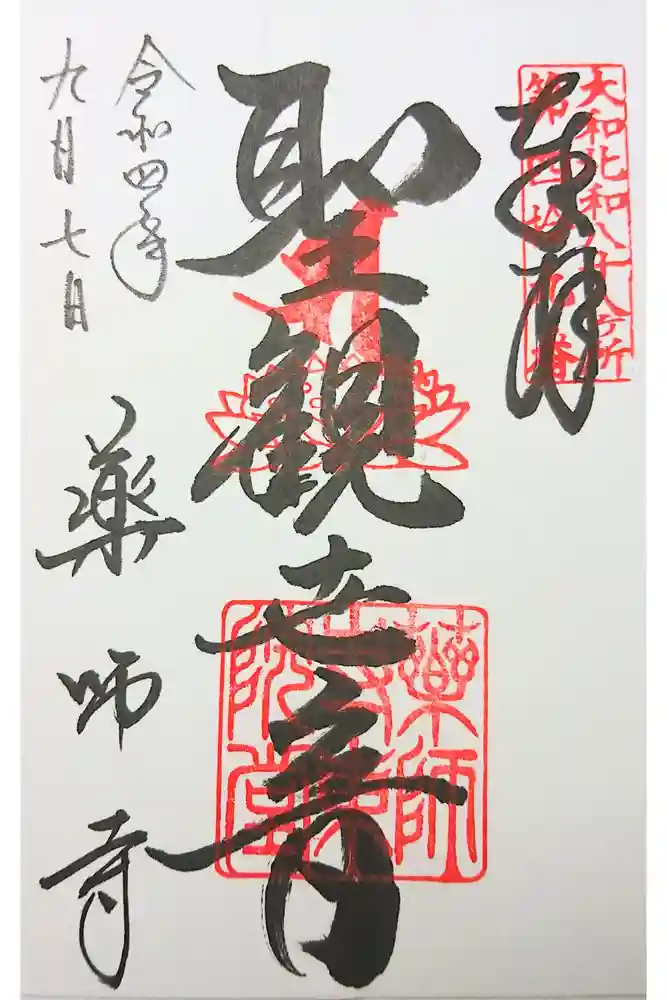 奉拝
大和北部八十八ヶ所
第四拾 番
聖観世音
薬師寺
東院堂
令和四年
九月七日
薬師寺